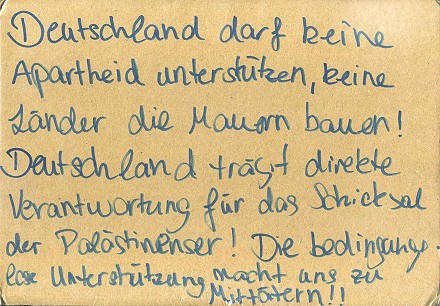 Deutschland darf keine
Apartheid unterstützen, keine
Länder die Mauern bauen!
Deutschland trägt direkte
Verantwortung für das Schicksal
der Palästinenser! Die bedingungs
lose Unterstützung macht uns zu
Mittätern!!